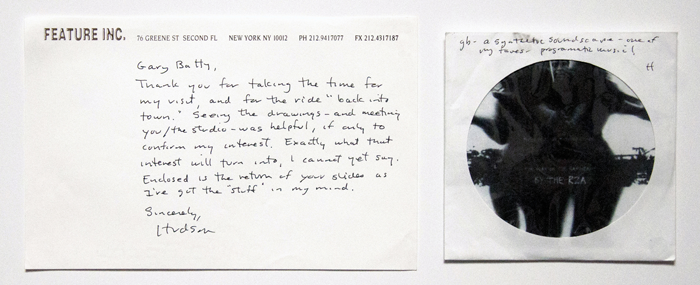 FEATURE INC. 76 GREENE ST SECOND FL NEW YORK NY 10012 PH 212.9417077 FX 212.4317187
Gary Batty,
Thank you for taking the time for
my visit, and for the ride "back into
town." Seeing the drawings - and meeting
you/the studio - was helpful, if only to
confirm my interest. Exactly what that
interest will turn into, I cannot yet say.
Enclosed is the return of your slides as
I've got the "stuff" in my mind.
Sincerely,
Hudson
gb - a synthetic soundscape - one of
my faves - programatic music!
H
BY THE RZA